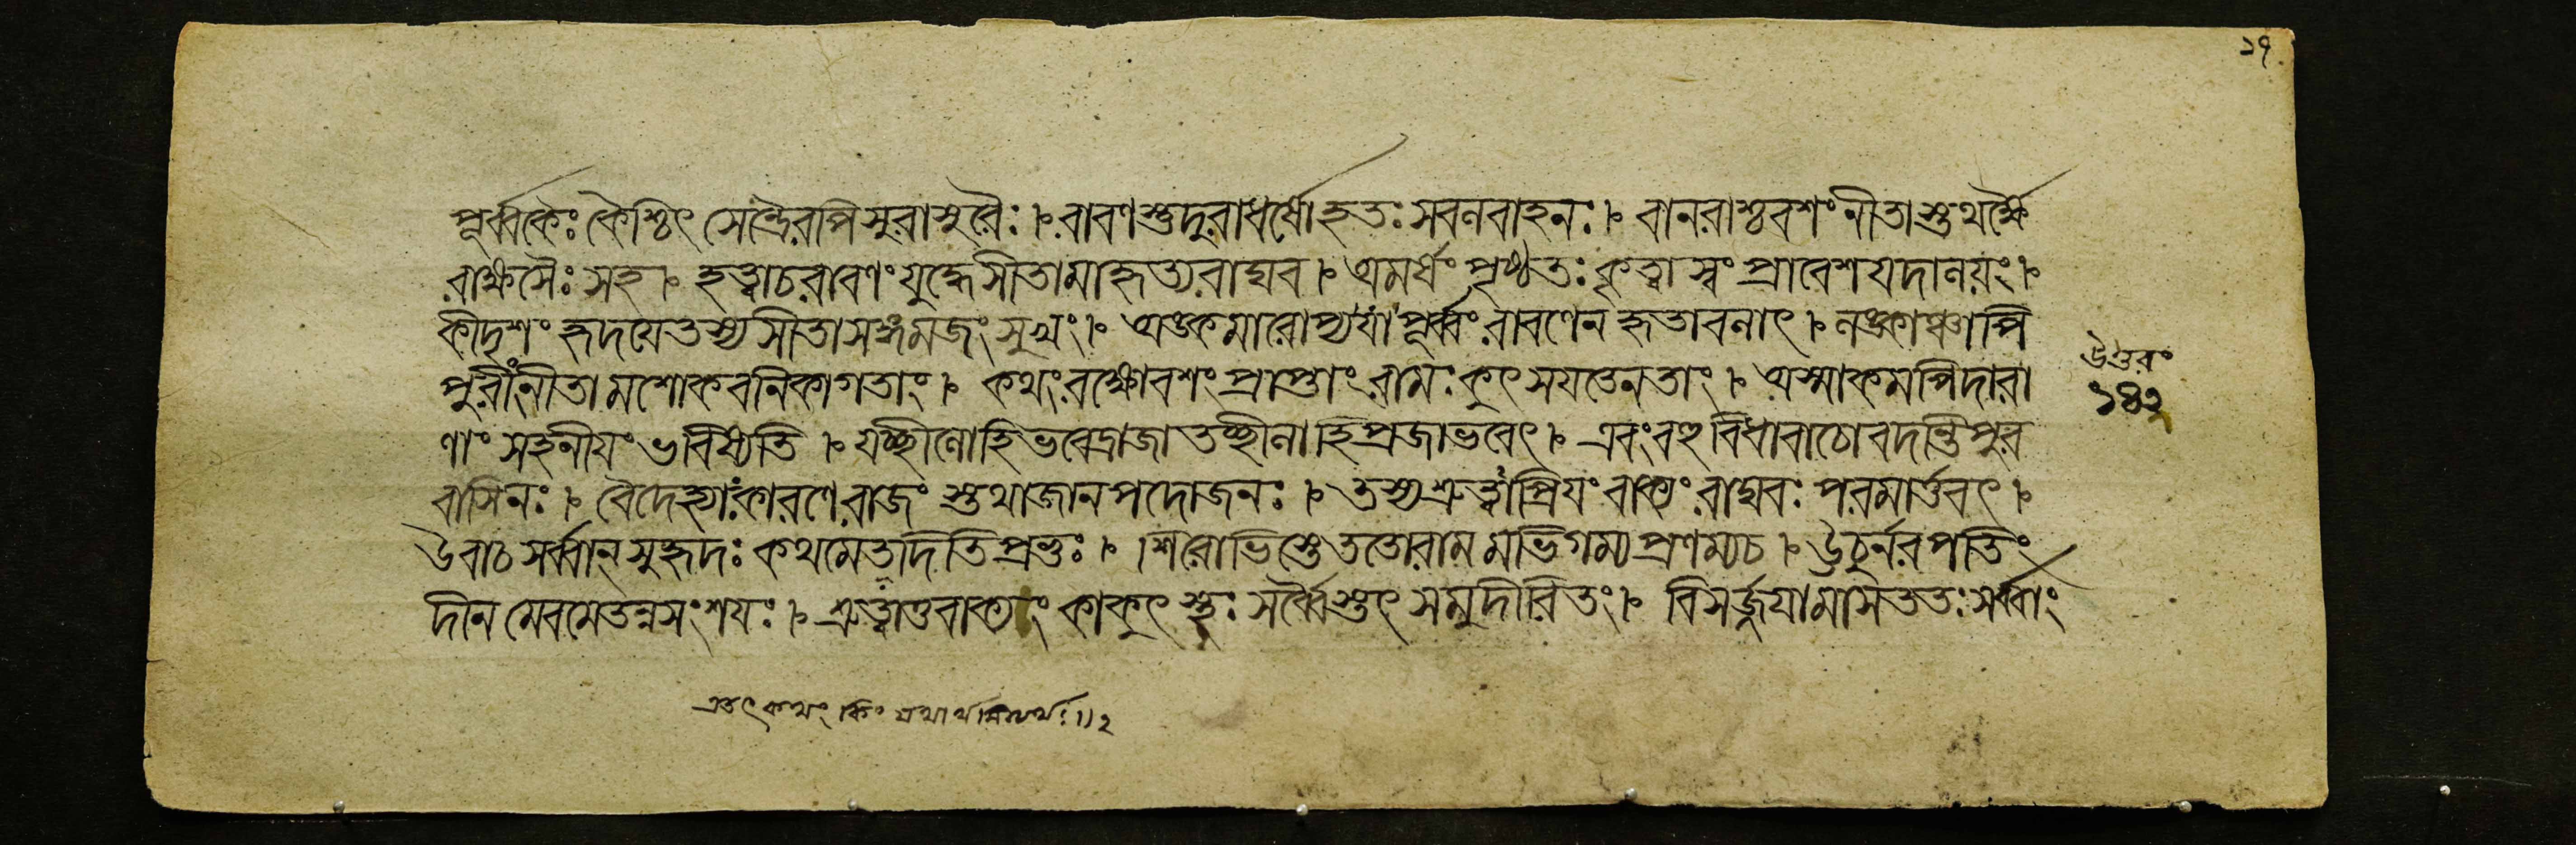 ১৭
পূর্ব্বকৈঃ কৈশ্চিৎ সেন্দ্রৈরপি সুরাসুরৈঃ । রাবণশ্চ দুরাধর্ষো হতঃ সবলবাহনঃ । বানরাশ্চ বশং নীতা
রাক্ষসৈঃ সহ । হত্বা চ রাবণং যুদ্ধে সীতামাহৃত্য রাঘব । অমর্ষং পৃষ্ঠতঃ কৃত্বা স্বং প্রাবেশযদালয়ং ।
কীদৃশং হৃদযে তস্য সীতাসঙ্গমজং সুখং । অঙ্কমারোপ্য যা পূর্ব্বং রাবণেন হৃতা বনাৎ । লঙ্কাঞ্চাপি
পুরীং নীতামশোকবনিকাগতাং । কথং রক্ষোবশং প্রাপ্তাং রামঃ কুৎসযতে ন তাং । অস্মাকমপি দারা
ণাং সহনীযং ভবিষ্যতি । যচ্ছীলো হি ভবেদ্রাজা তচ্ছীলা হি প্রজা ভবেৎ । এবং বহুবিধা বাচো বদন্তি পুর
বাসিনঃ । বৈদেহ্যাং কারণে রাজং স্তথা জানপদো জনঃ । তস্য শ্রুত্বাপ্রিযং বাক্যং রাঘবঃ পরমার্ত্তবৎ ।
উবাচ সর্ব্বান্ সুহৃদঃ কথমেতাদতি প্রভুঃ । শিরোভিস্তে ততো রামমভিগম্য প্রণম্য চ । উচুর্নরপতিং
দীনমেবমেতন্ন সংশযঃ । শ্রুত্বা তু বাক্যং কাকুৎস্থঃ সর্ব্বৈস্তৎ সমুদীরিতং । বিসর্জ্জযামাস ততঃ সর্ব্বাং
উত্তরং
১৪২
এতৎ কথং কিং যথার্থমিত্যর্থঃ ॥ ২